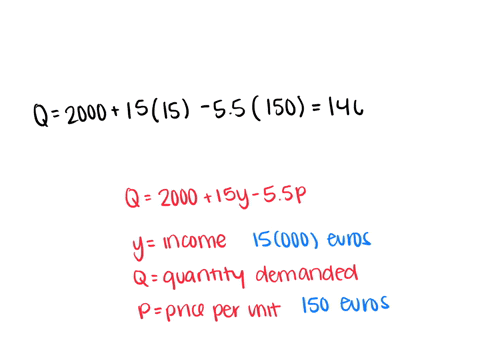 Q = 2000 + 15(15) - 5.5(150) = 140
Q = 2000 + 15y - 5.5p
y = income 15(000) euros
Q = quantity demanded
P = price per unit 150 euros